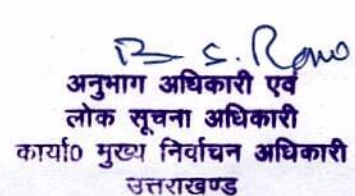 B. S. Rana
अनुभाग अधिकारी एवं
लोक सूचना अधिकारी
कार्या0 मुख्य निर्वाचन अधिकारी
उत्तराखण्ड